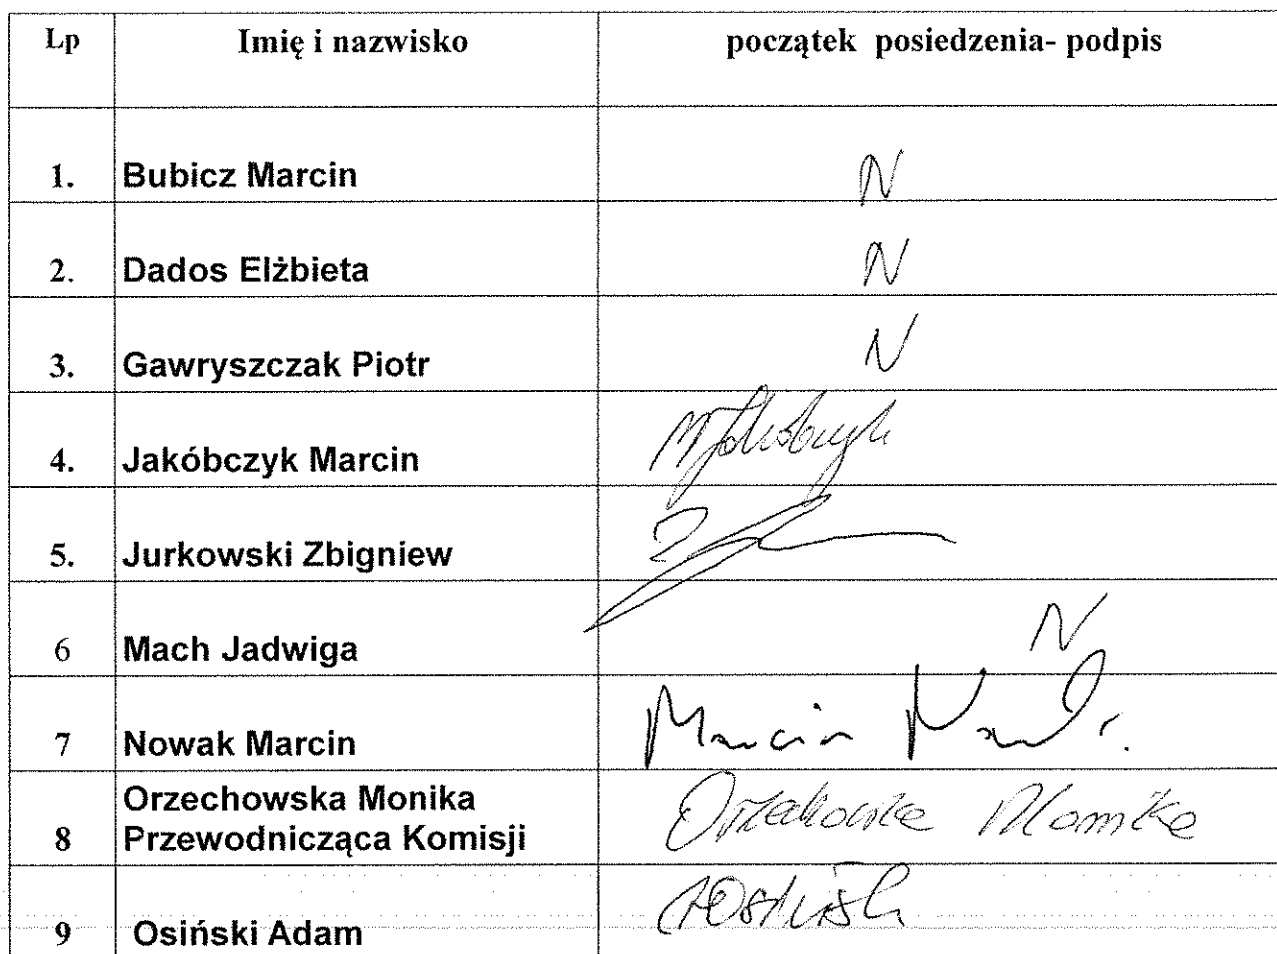 Lp Imię i nazwisko początek posiedzenia- podpis
1. Bubicz Marcin N
2. Dados Elżbieta N
3. Gawryszczak Piotr N
4. Jakóbczyk Marcin MJakóbczyk
5. Jurkowski Zbigniew
6 Mach Jadwiga N
7 Nowak Marcin Marcin Nowak
8 Orzechowska Monika Orzechowska Monika
Przewodnicząca Komisji
9 Osiński Adam AOsiński